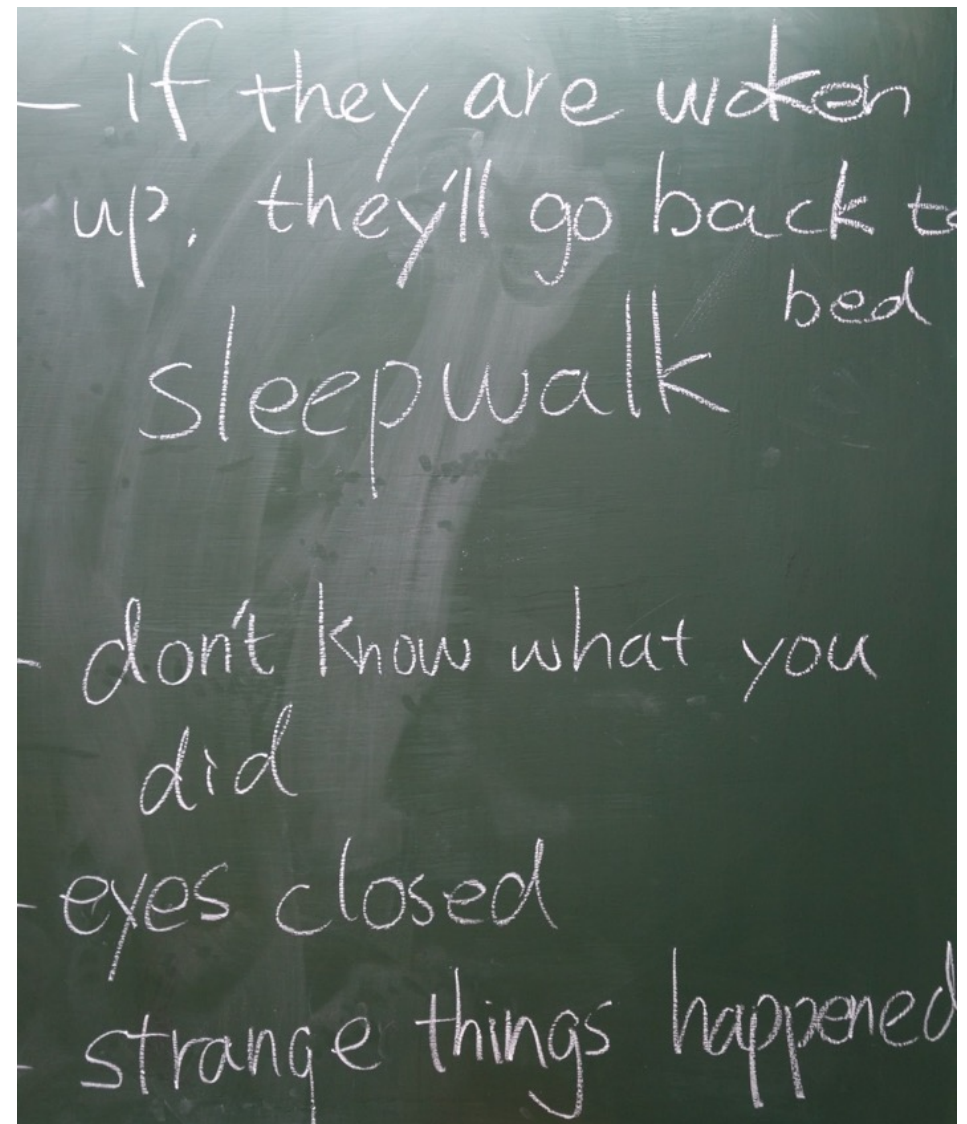 - if they are woken
up, they'll go back to
bed
sleepwalk
- don't know what you
did
- eyes closed
- strange things happened